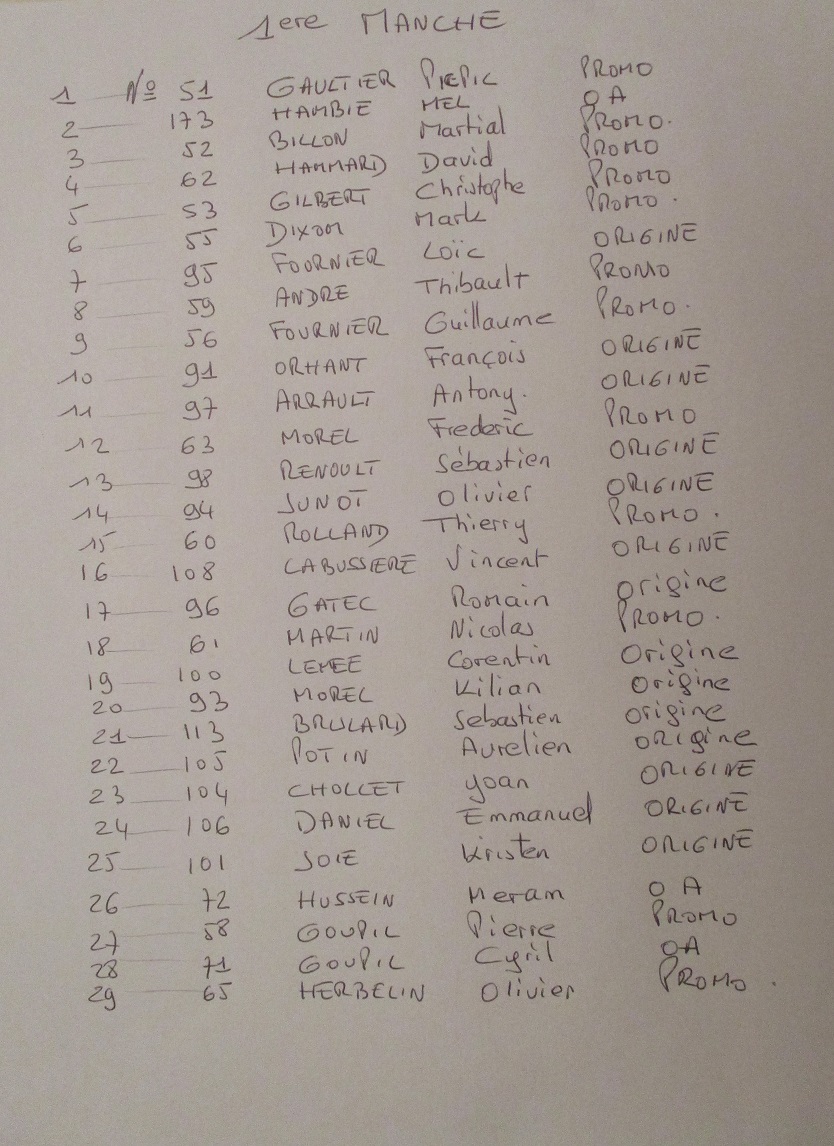 1ere MANCHE
1 Nº 51 GAULTIER PIEPIC PROMO
2 173 HAMBIE MEL OA
3 52 BILLON Martial PROMO.
4 62 HAMMARD David PROMO
5 53 GILBERT Christophe PROMO
6 55 DIXON Mark PROMO.
7 95 FOURNIER Loïc ORIGINE
8 59 ANDRE Thibault PROMO
9 56 FOURNIER Guillaume PROMO.
10 91 ORHANT François ORIGINE
11 97 ARRAULT Antony. ORIGINE
12 63 MOREL Frederic PROMO
13 98 RENOULT Sébastien ORIGINE
14 94 JUNOT Olivier ORIGINE
15 60 ROLLAND Thierry PROMO.
16 108 LABUSSIERE Vincent ORIGINE
17 96 GATEC Romain origine
18 61 MARTIN Nicolas PROMO.
19 100 LEMEE Corentin Origine
20 93 MOREL Kilian Origine
21 113 BRULARD Sebastien origine
22 105 POTIN Aurelien ORIgine
23 104 CHOLLET yoan ORIGINE
24 106 DANIEL Emmanuel ORIGINE
25 101 JOIE Kristen ORIGINE
26 72 HUSSEIN Meram OA
27 58 GOUPIL Pierre PROMO
28 71 GOUPIL Cyril OA
29 65 HERBELIN Olivier PROMO.